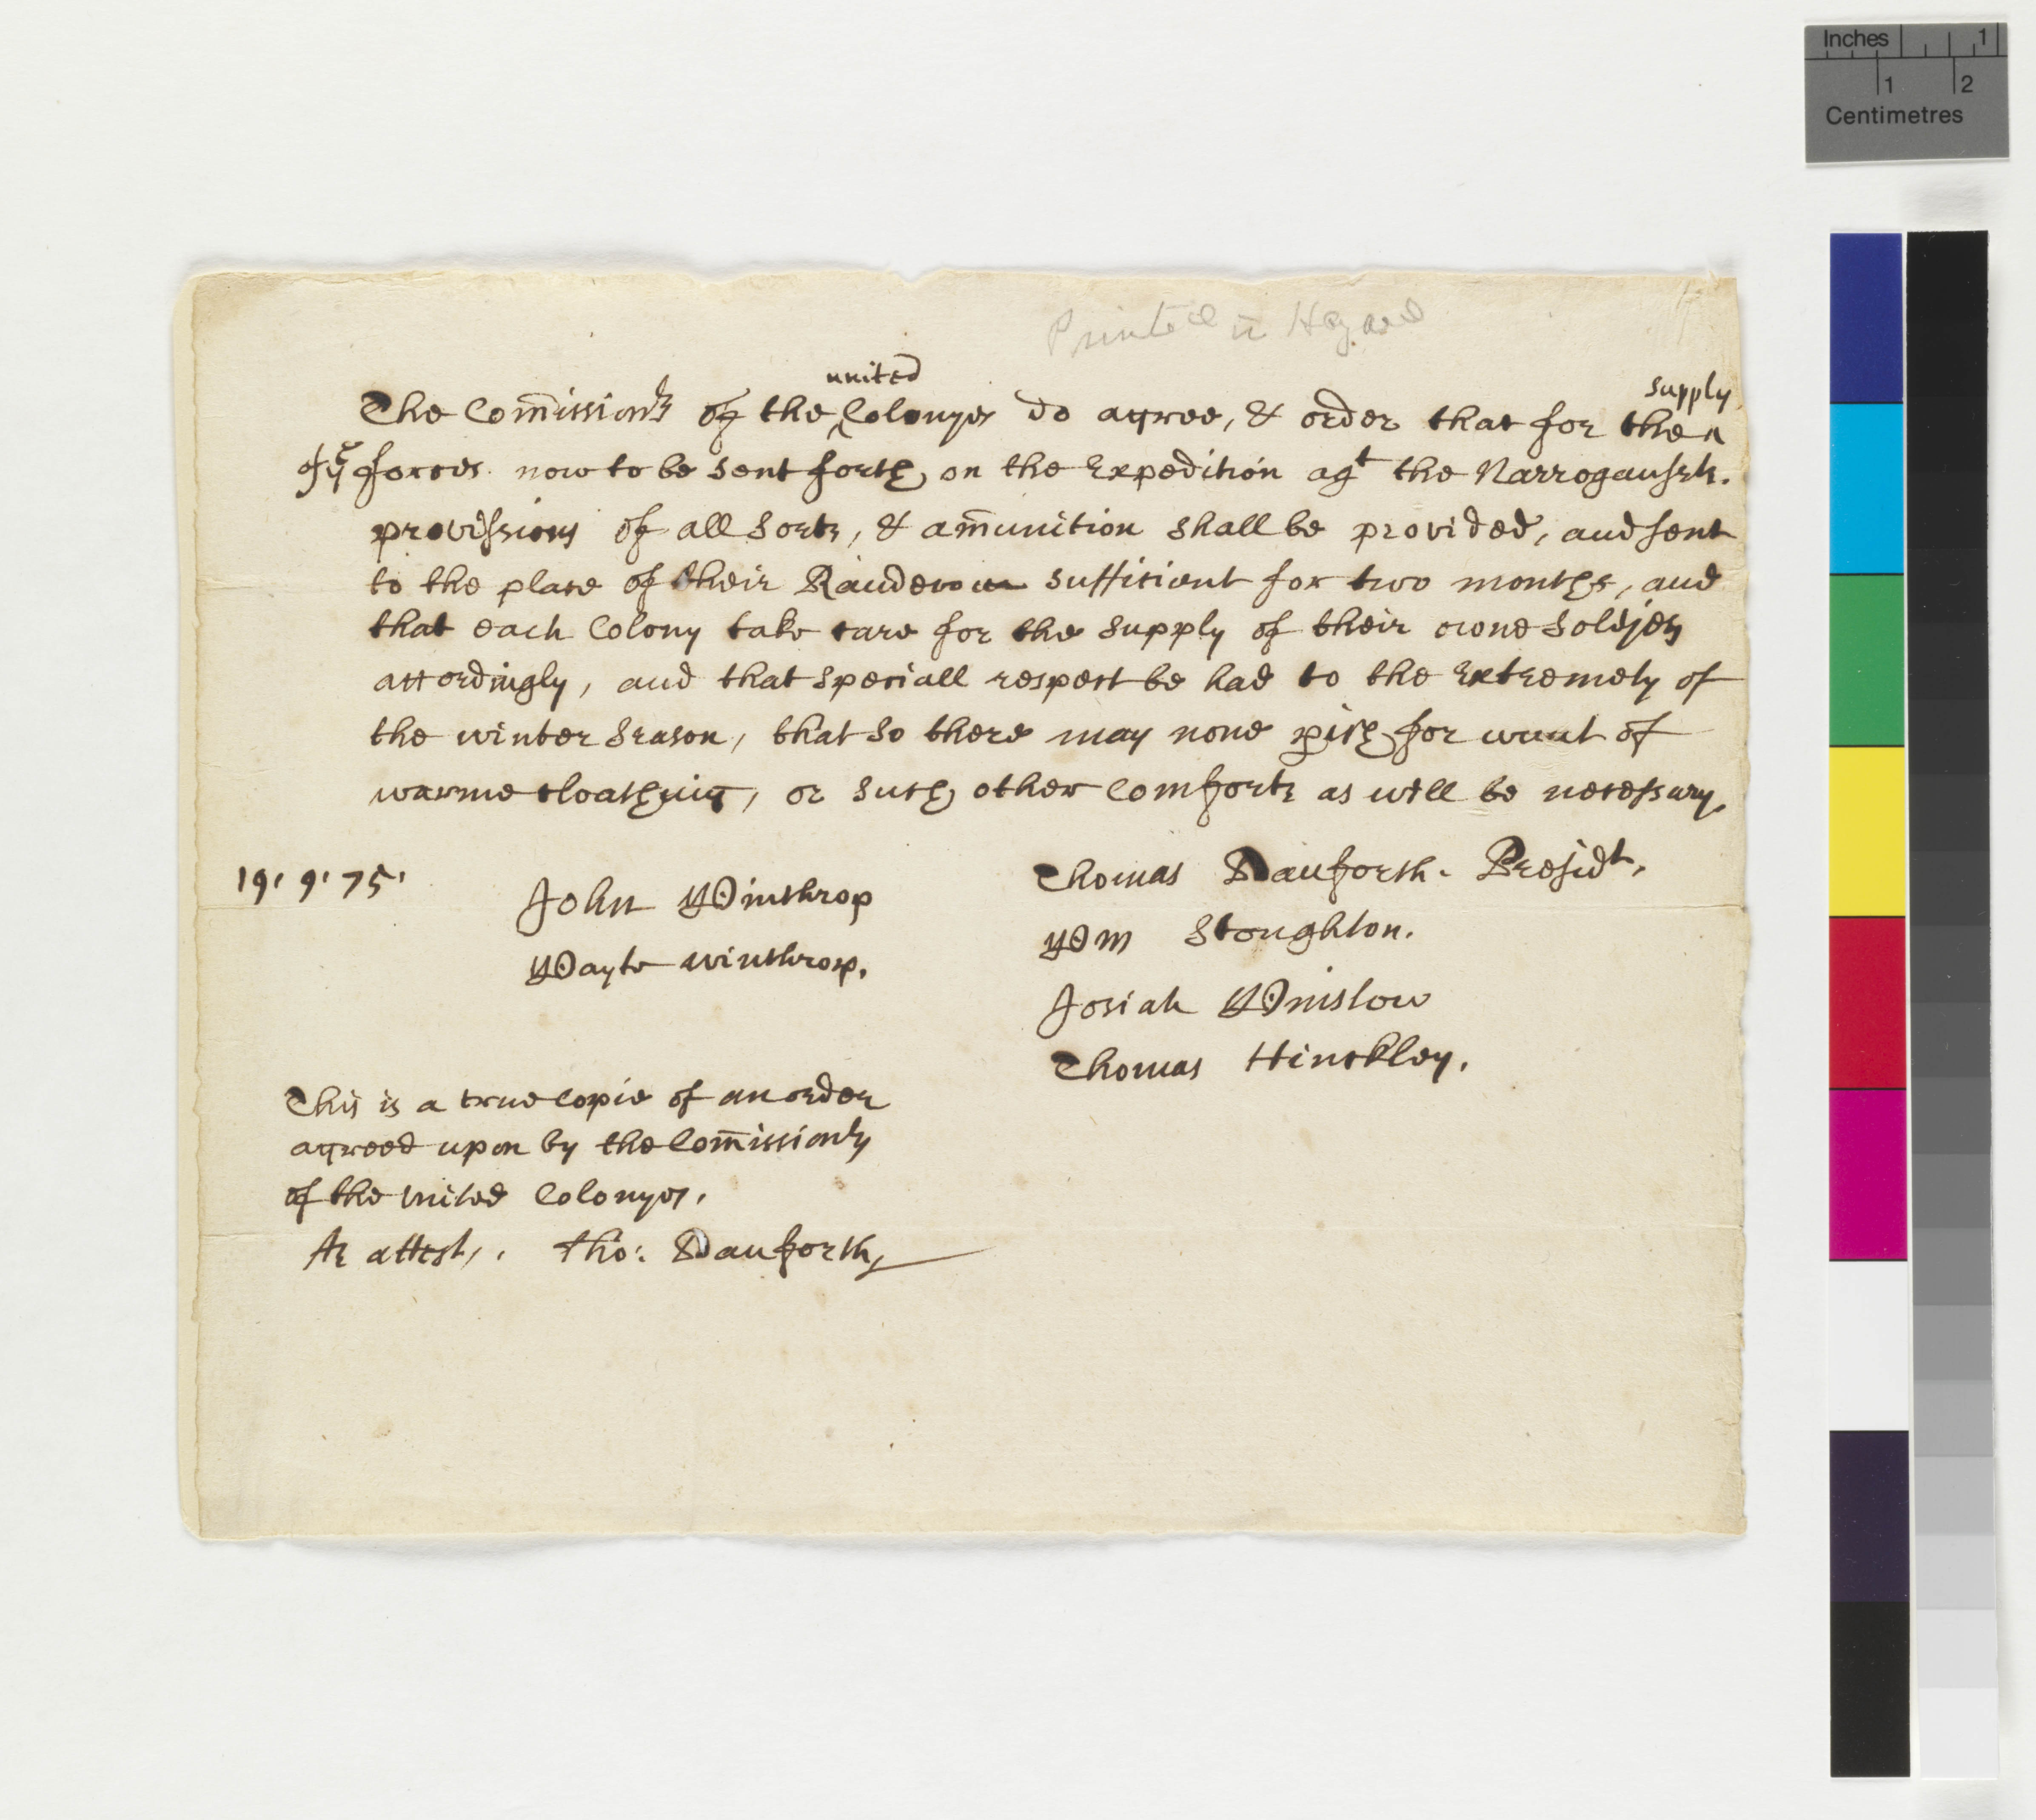 Inches 1
1 2
Centimetres
Printed in Hazard
united
supply
The Com̄issionrs of the ^ Colonyes do agree, & order that for the ^
of ye forces now to be sent forth on the Expedition agt the Narrogansets.
provissions of all sorts, & am̄unition shall be provided, and sent
to the place of their Randevou sufficient for two months, and
that each Colony take care for the supply of their owne soldjers
accordingly, and that speciall respect be had to the Extremety of
the winter season, that so there may none pish for want of
warme cloathing, or such other Comforts as will be necessary.
19' 9' 75'
John Winthrop
Wayte Winthrop.
Thomas Danforth. Presidt.
Wm Stoughton.
Josiah Winslow
Thomas Hinckley.
This is a true copie of an order
agreed upon by the Com̄issionrs
of the United Colonyes.
As attests. Tho: Danforth